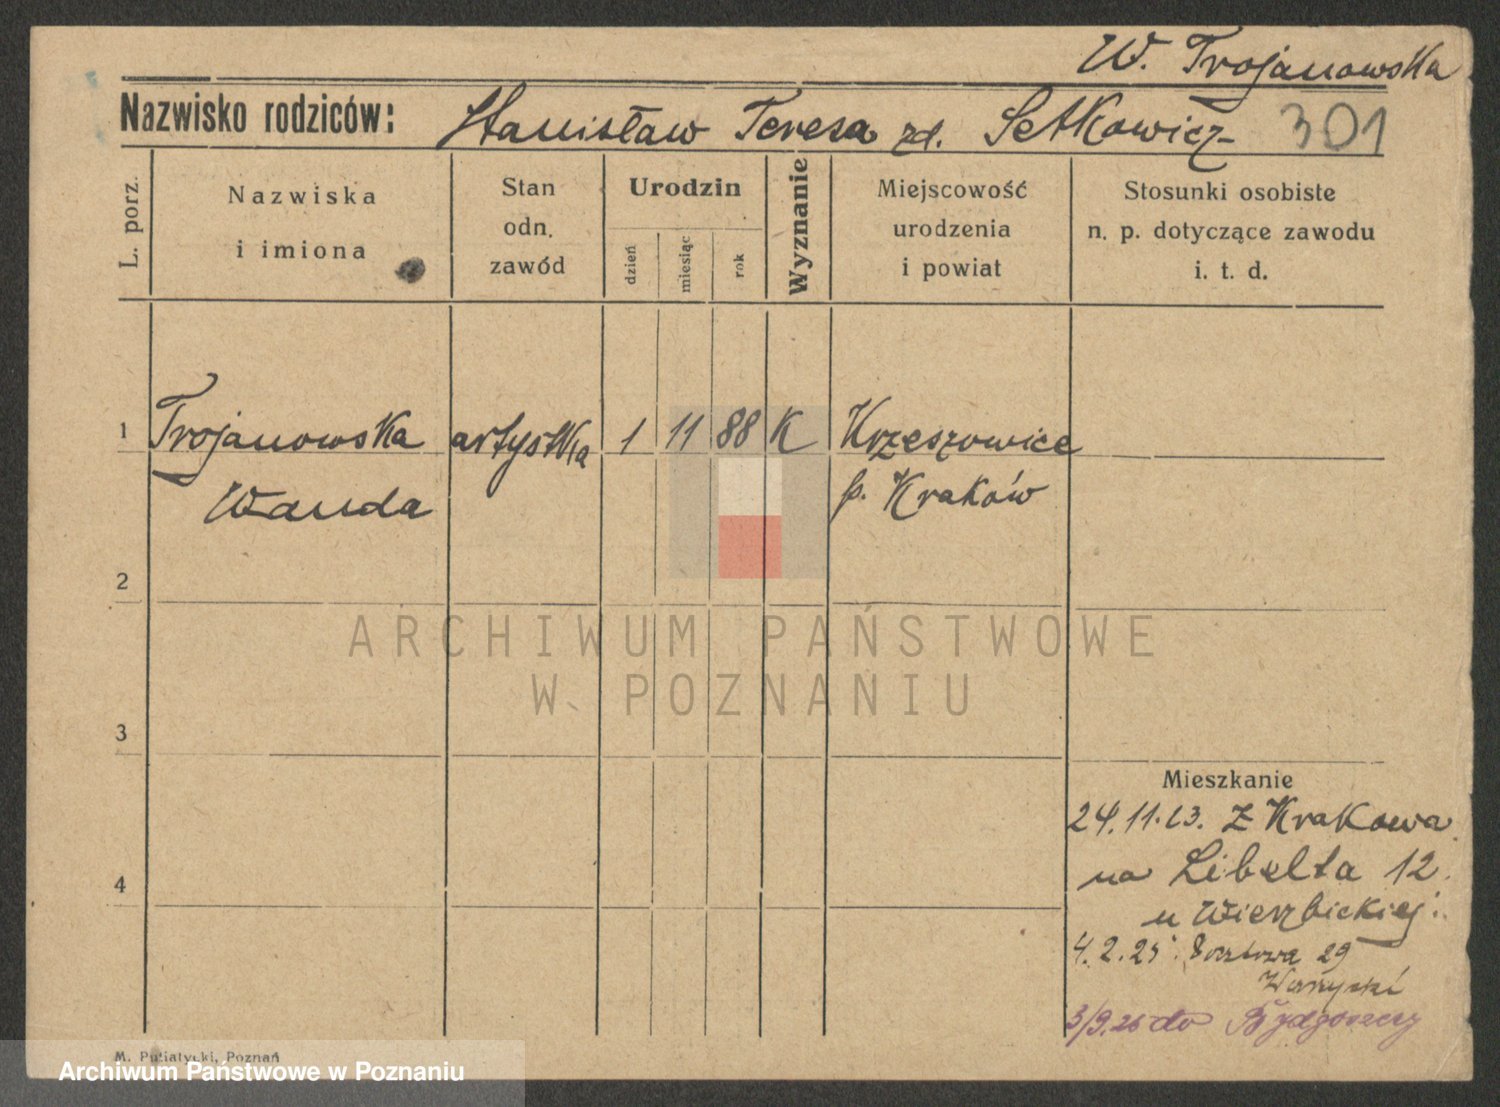 W. Trojanowska
Nazwisko rodziców: Stanisław Teresa zd. Setkowicz 301
L. porz.
Nazwiska
i imiona
Stan
odn.
zawód
Urodzin
dzień
miesiąc
rok
Wyznanie
Miejscowość
urodzenia
i powiat
Stosunki osobiste
n. p. dotyczące zawodu
i. t. d.
1 Trojanowska artystka 1 11 88 K Krzeszowice
Wanda p. Kraków
2
ARCHIWUM PAŃSTWOWE
W POZNANIU
3
Mieszkanie
24.11.23. z Krakowa
4
na Libelta 12.
u Wierzbickiej.
4.2.25. 29
3/9.26 do Bydgoszczy
M. Putiatycki, Poznań
Archiwum Państwowe w Poznaniu